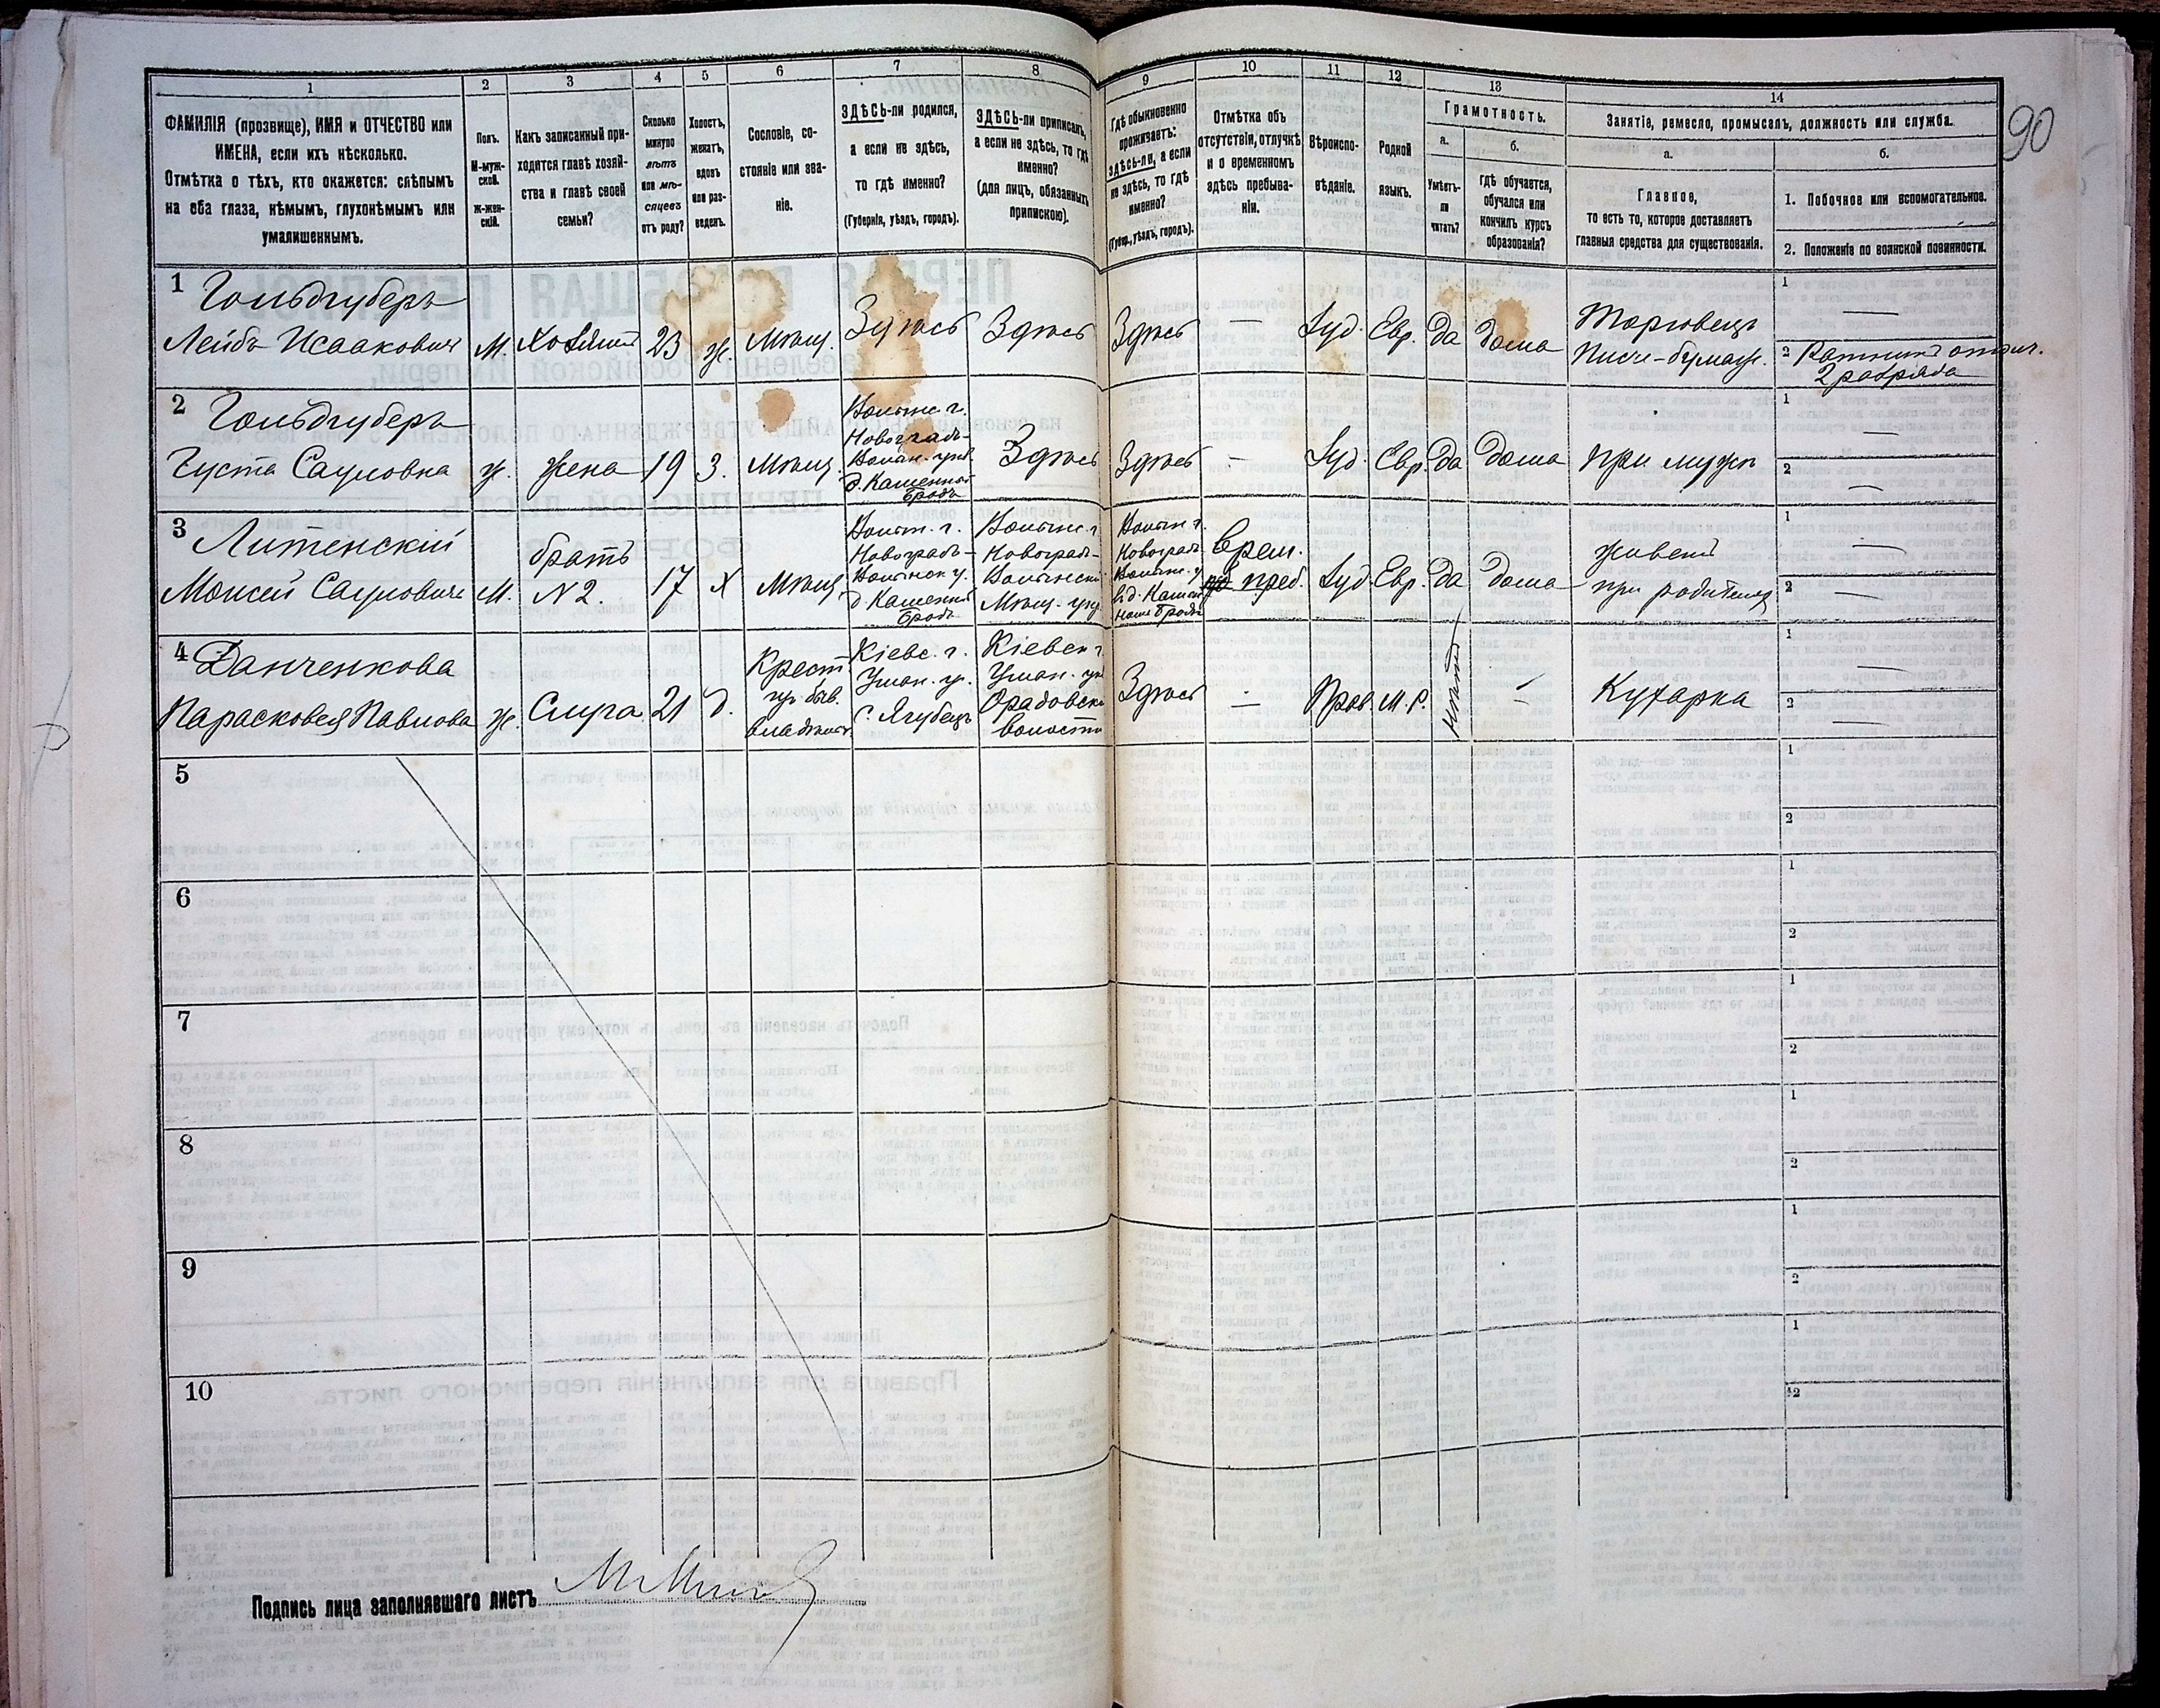 1
2
3
4
5
6
7
8
9
10
11
12
13
14
90
ФАМИЛІЯ (прозвище), ИМЯ и ОТЧЕСТВО или
ИМЕНА, если ихъ нѣсколько.
Отмѣтка о тѣхъ, кто окажется: слѣпымъ
на оба глаза, нѣмымъ, глухонѣмымъ или
умалишеннымъ.
Полъ.
М-муж-
ской.
Ж-жен-
скій.
Какъ записанный при-
ходится главѣ хозяй-
ства и главѣ своей
семьи?
Сколько
минуло
лѣтъ
или мѣ-
сяцевъ
отъ роду?
Холостъ,
женатъ,
вдовъ
или раз-
веденъ.
Сословіе, со-
стояніе или зва-
ніе.
ЗДѢСЬ-ли родился,
а если не здѣсь,
то гдѣ именно?
(Губернія, уѣздъ, городъ).
ЗДѢСЬ-ли приписанъ,
а если не здѣсь, то гдѣ
именно?
(для лицъ, обязанныхъ
припискою).
Гдѣ обыкновенно
проживаетъ:
здѣсь-ли, а если
не здѣсь, то гдѣ
именно?
(Губер., уѣздъ, городъ).
Отмѣтка объ
отсутствіи, отлучкѣ
и о временномъ
здѣсь пребыва-
ніи.
Вѣроиспо-
вѣданіе.
Родной
языкъ.
Грамотность.
а.
Умѣетъ-
ли
читать?
б.
гдѣ обучается,
обучался или
кончилъ курсъ
образованія?
Занятіе, ремесло, промыселъ, должность или служба.
а.
Главное,
то есть то, которое доставляетъ
главныя средства для существованія.
б.
1. Побочное или вспомогательное.
2. Положеніе по воинской повинности.
1
Гольдгуберъ
Лейбъ Исааковичъ
М.
Хозяинъ
23
ж.
Мѣщ.
Здѣсь
Здѣсь
Здѣсь
—
Іуд.
Евр.
да
дома
Торговецъ
Писче-бумаж.
1
—
2 Ратникъ ополч.
2 разряда
2
Гольдгуберъ
Густа Сауловна
ж.
жена
19
З.
Мѣщ.
Волынс. г.
Новоградъ-
Волын. уѣз.
д. Каменный
Бродъ
Здѣсь
Здѣсь
—
Іуд.
Евр.
да
дома
при мужѣ
1
—
2
—
3
Литенскій
Моисей Сауловичъ
М.
братъ
N 2.
17
Х
Мѣщ
Волын. г.
Новоградъ-
Волынск у.
д. Каменный
Бродъ
Волынс. г.
Новоград-
Волынск
Мѣщ. упр
Волын. г.
Новоградъ
Волын. у
въ д. Камен
номъ Бродѣ
Врем.
преб.
Іуд
Евр.
да
дома
живетъ
при родителяхъ
1
—
2
—
4
Данченкова
Парасковея Павлова
ж.
Слуга
21
д.
Крест.
изъ быв.
владѣльч.
Кіевс. г.
Уман. у.
с. Ягубецъ
Кіевск г.
Уман. уѣз
Орадовск
волости
Здѣсь
—
Прав.
М. Р.
нѣтъ
—
Кухарка
1
—
2
—
5
1
2
6
1
2
7
1
2
8
1
2
9
1
2
10
1
2
Подпись лица заполнявшаго листъ